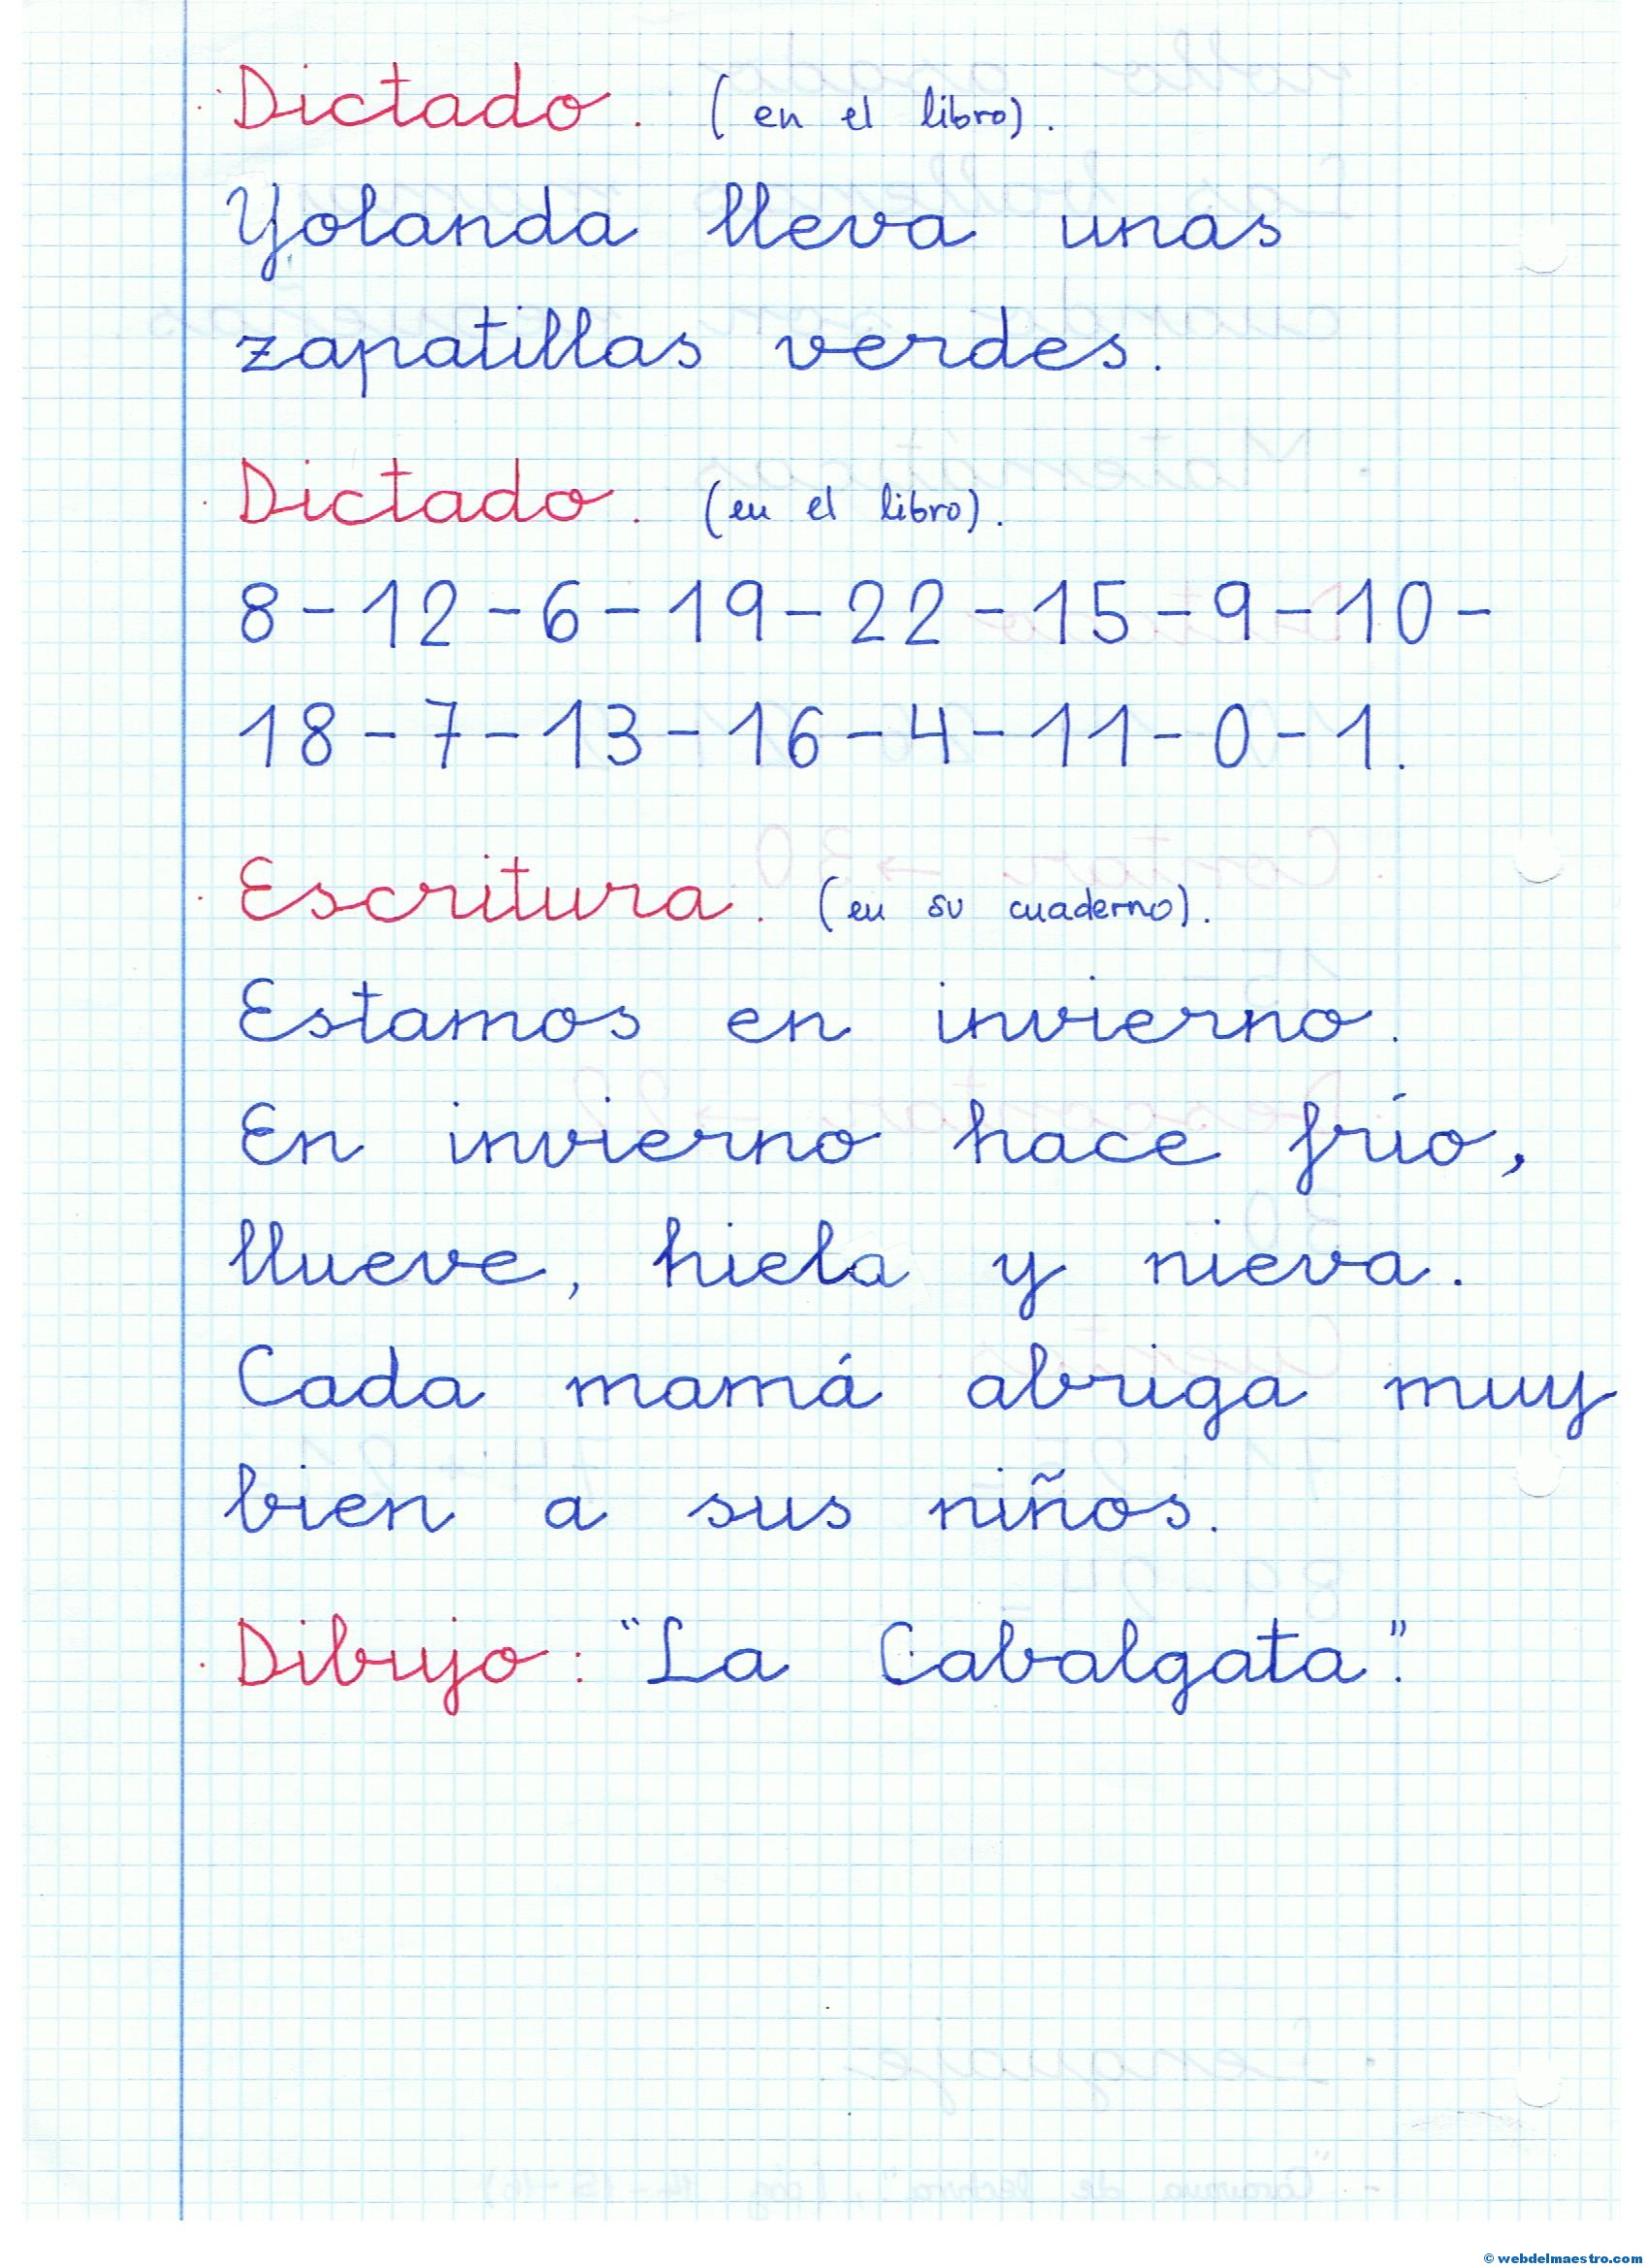 · Dictado. (en el libro).
Yolanda lleva unas
zapatillas verdes.
· Dictado. (en el libro).
8-12-6-19-22-15-9-10-
18-7-13-16-4-11-0-1.
· Escritura. (en su cuaderno).
Estamos en invierno.
En invierno hace frío,
llueve, hiela y nieva.
Cada mamá abriga muy
bien a sus niños.
· Dibujo: "La Cabalgata".
© webdelmaestro.com